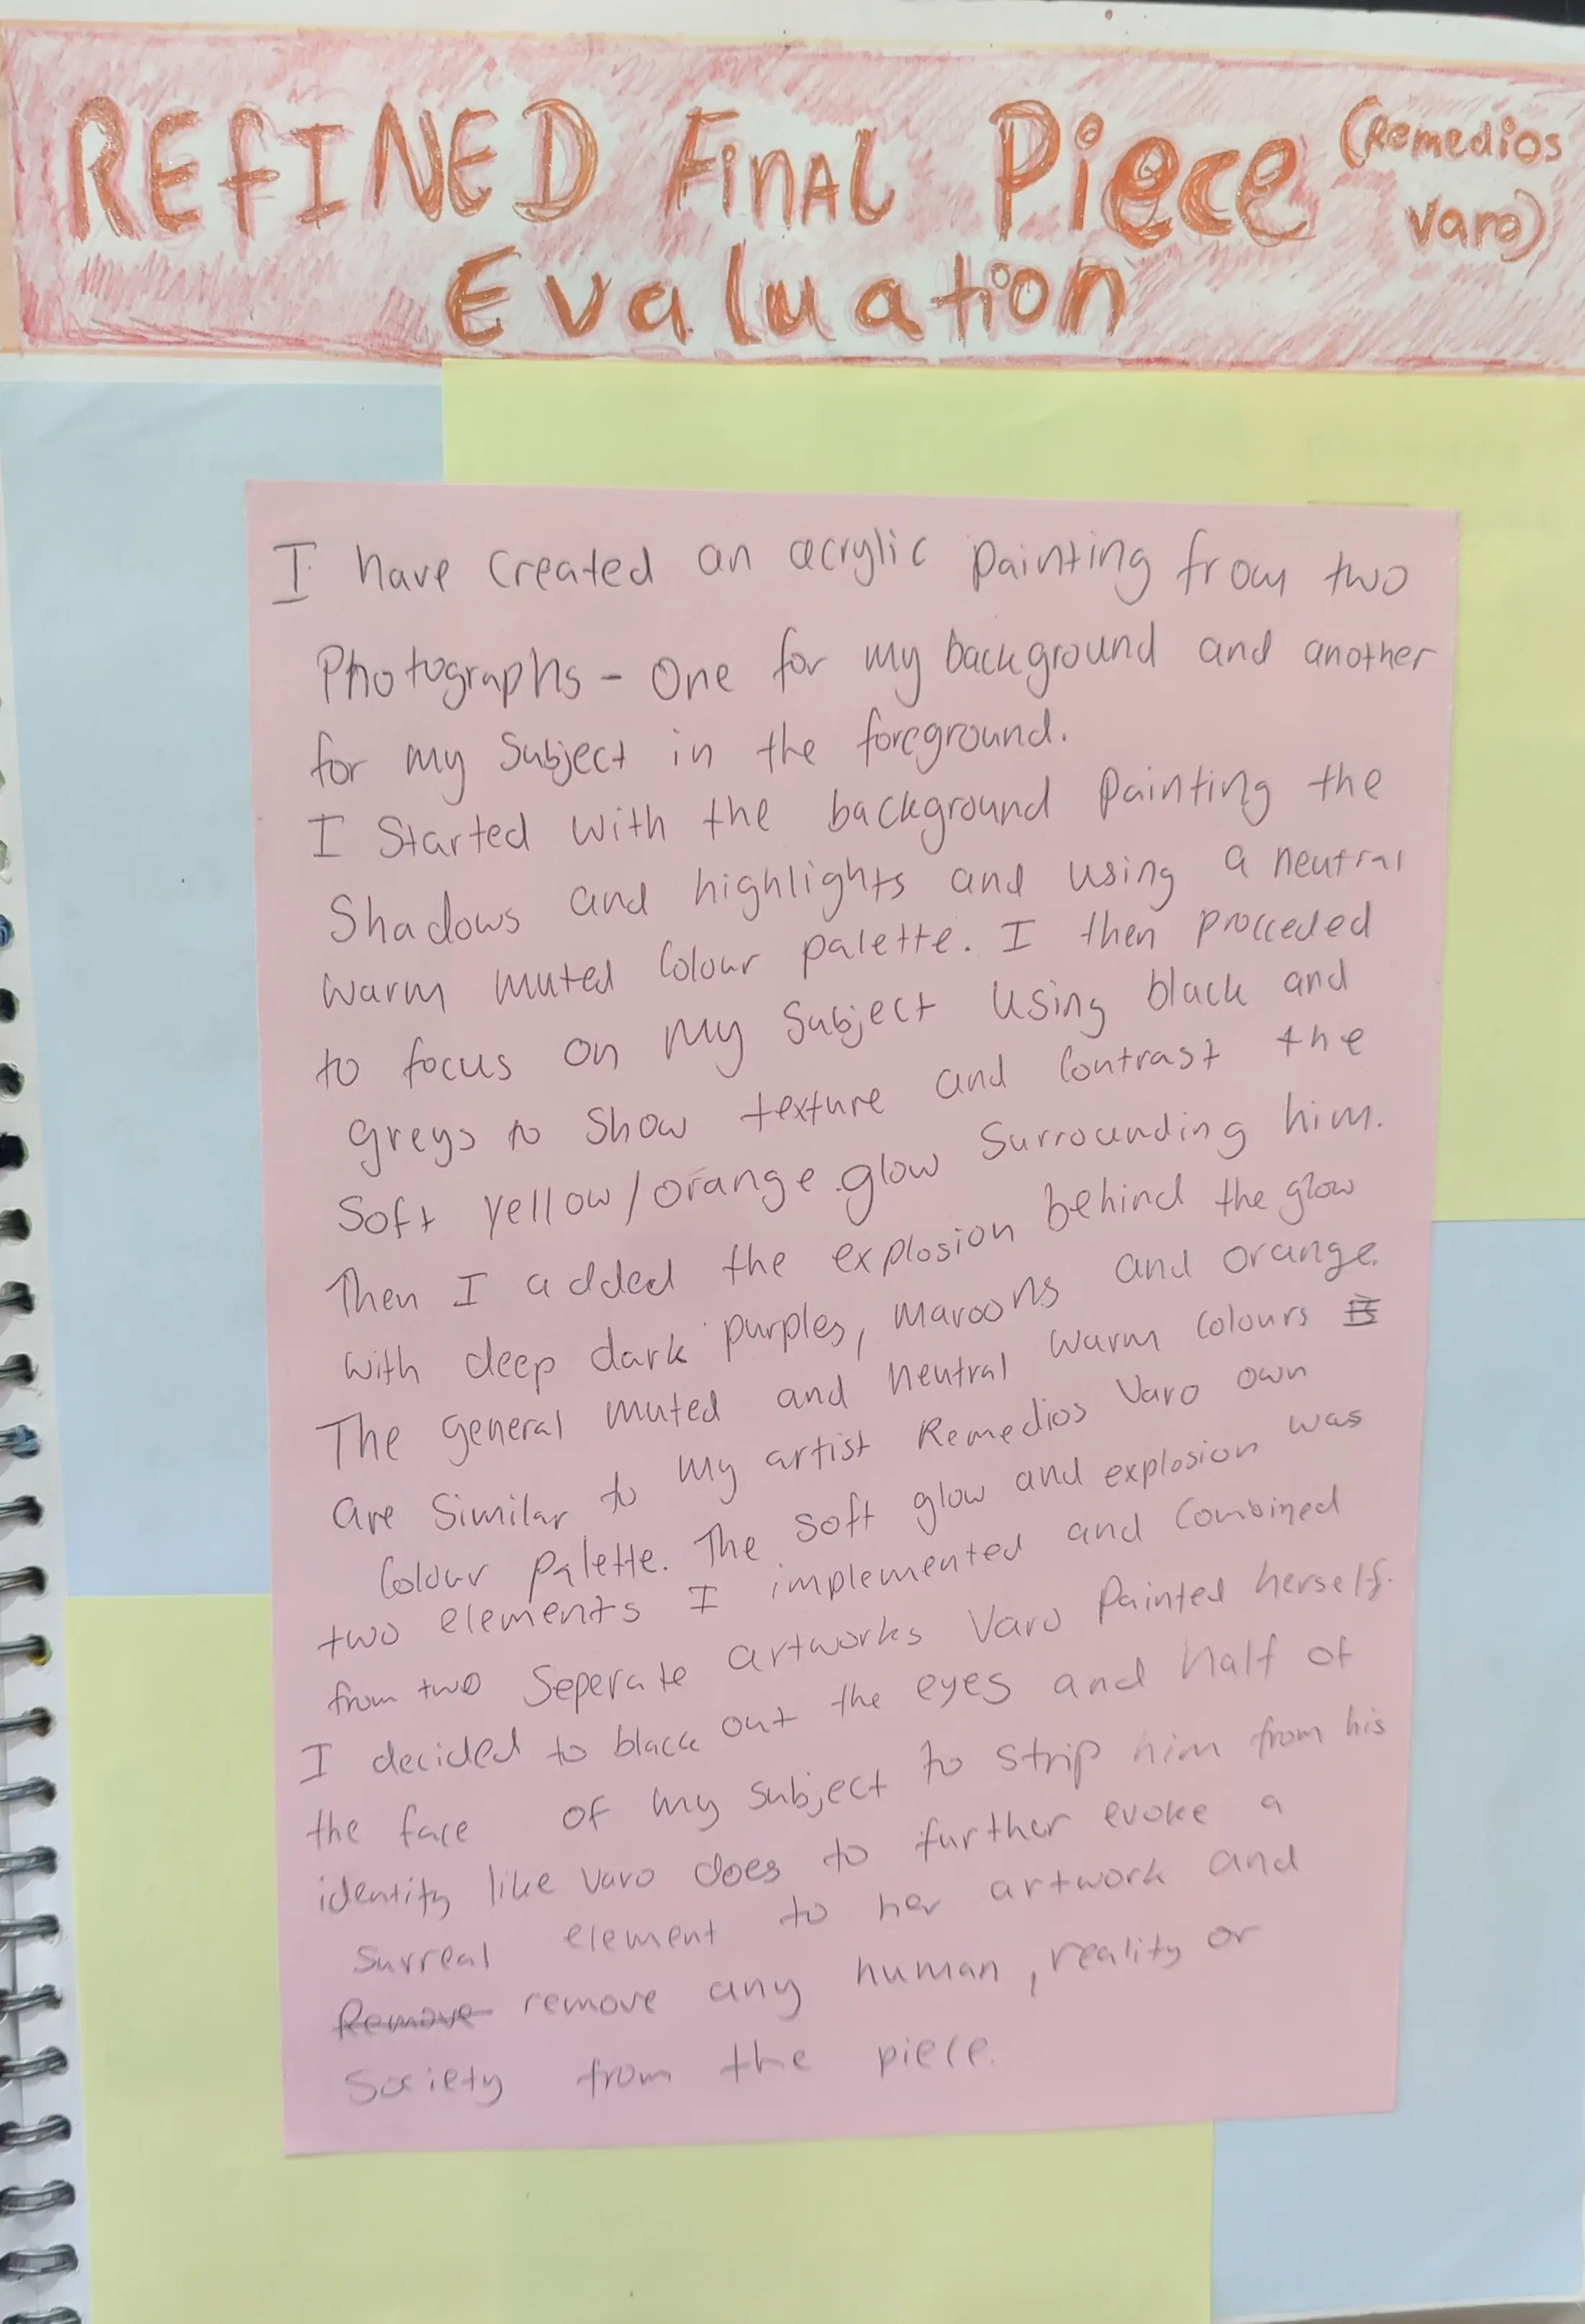 REFINED FINAL Piece (Remedios
Varo)
Evaluation
I have created an acrylic painting from two
Photographs - One for my background and another
for my Subject in the foreground.
I Started with the background Painting the
Shadows and highlights and using a neutral
warm muted Colour palette. I then procceded
to focus on my Subject using black and
greys to show texture and Contrast the
Soft yellow/orange glow Surrounding him.
Then I added the explosion behind the glow
with deep dark purples, maroons and orange.
The general muted and neutral warm Colours
are Similar to my artist Remedios Varo own
Colour palette. The soft glow and explosion was
two elements I implemented and Combined
from two Seperate artworks Varo Painted herself.
I decided to black out the eyes and half of
the face of my subject to strip him from his
identity like varo does to further evoke a
surreal element to her artwork and
Remove remove any human, reality or
Society from the piece.